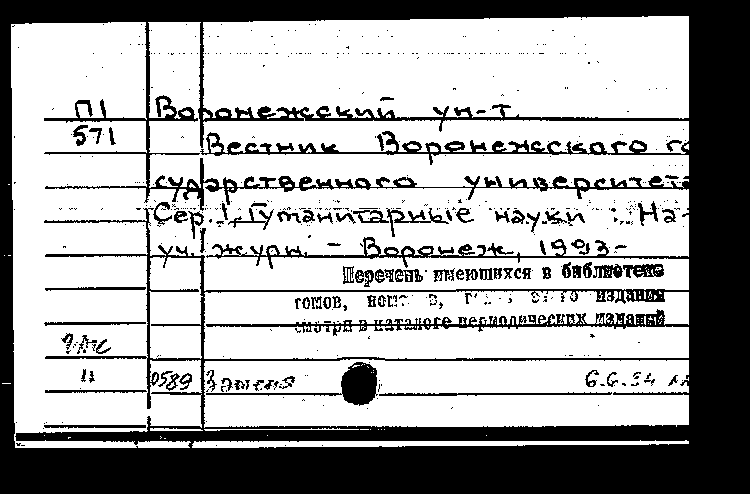 П1 Воронежский ун-т.
571 Вестник Воронежского го
сударственного университета
Сер. 1, Гуманитарные науки : На-
уч. журн. - Воронеж, 1993-
Перечень имеющихся в библиотеке
томов, издания
смотри в каталоге периодических изданий
0589